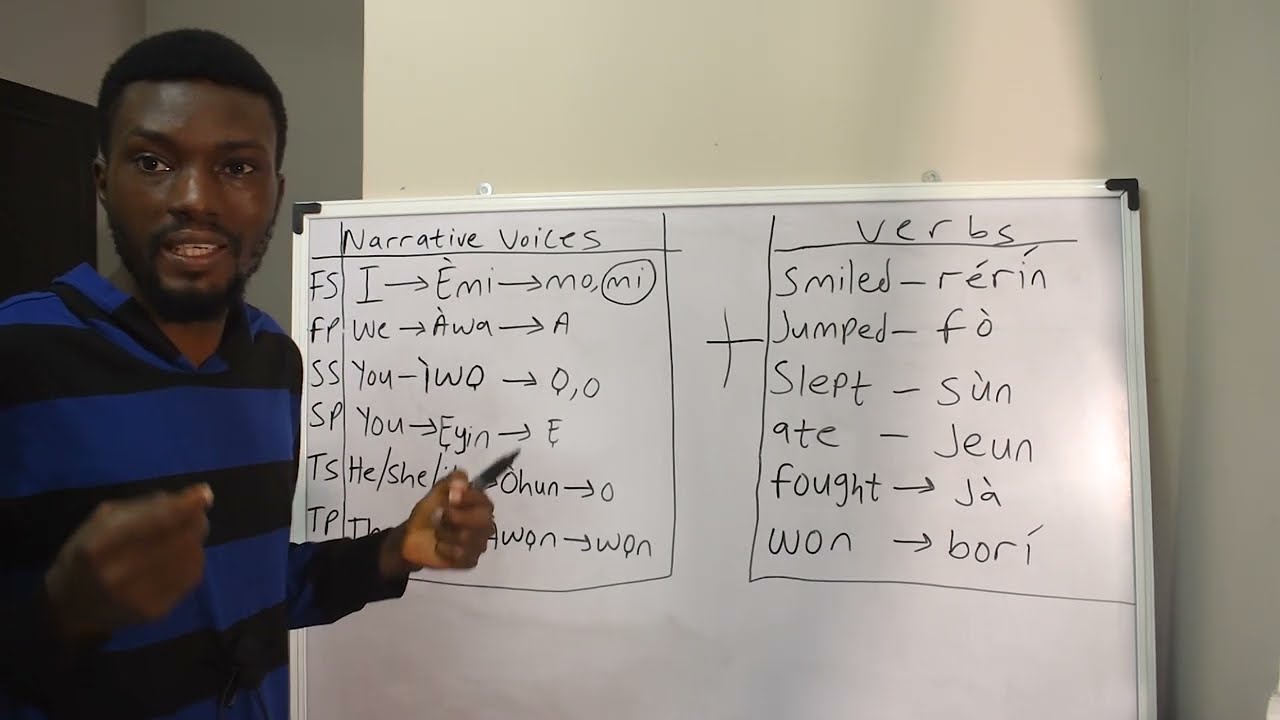 Narrative Voices
FS I → Èmi → mo, mi
FP We → Àwa → A
SS You – Ìwọ → Ọ, O
SP You → Ẹyin → Ẹ
TS He/She/ → Òhun → O
TP Àwọn → wọn
+
Verbs
Smiled – rérín
Jumped – fò
Slept – sùn
ate – Jeun
fought → Jà
won → borí